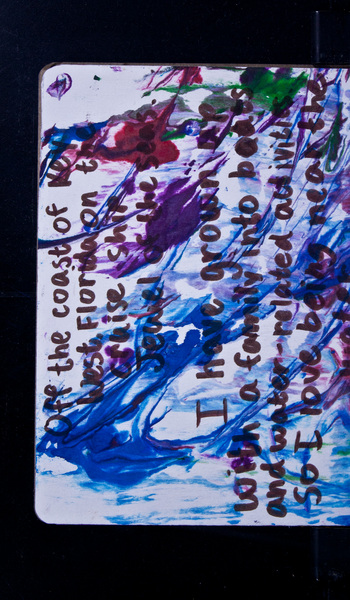 Off the coast of Key
West, Florida on the
cruise ship
Jewel of the Seas.
I have grown up
with a family into boats
and water related
So I love being near the